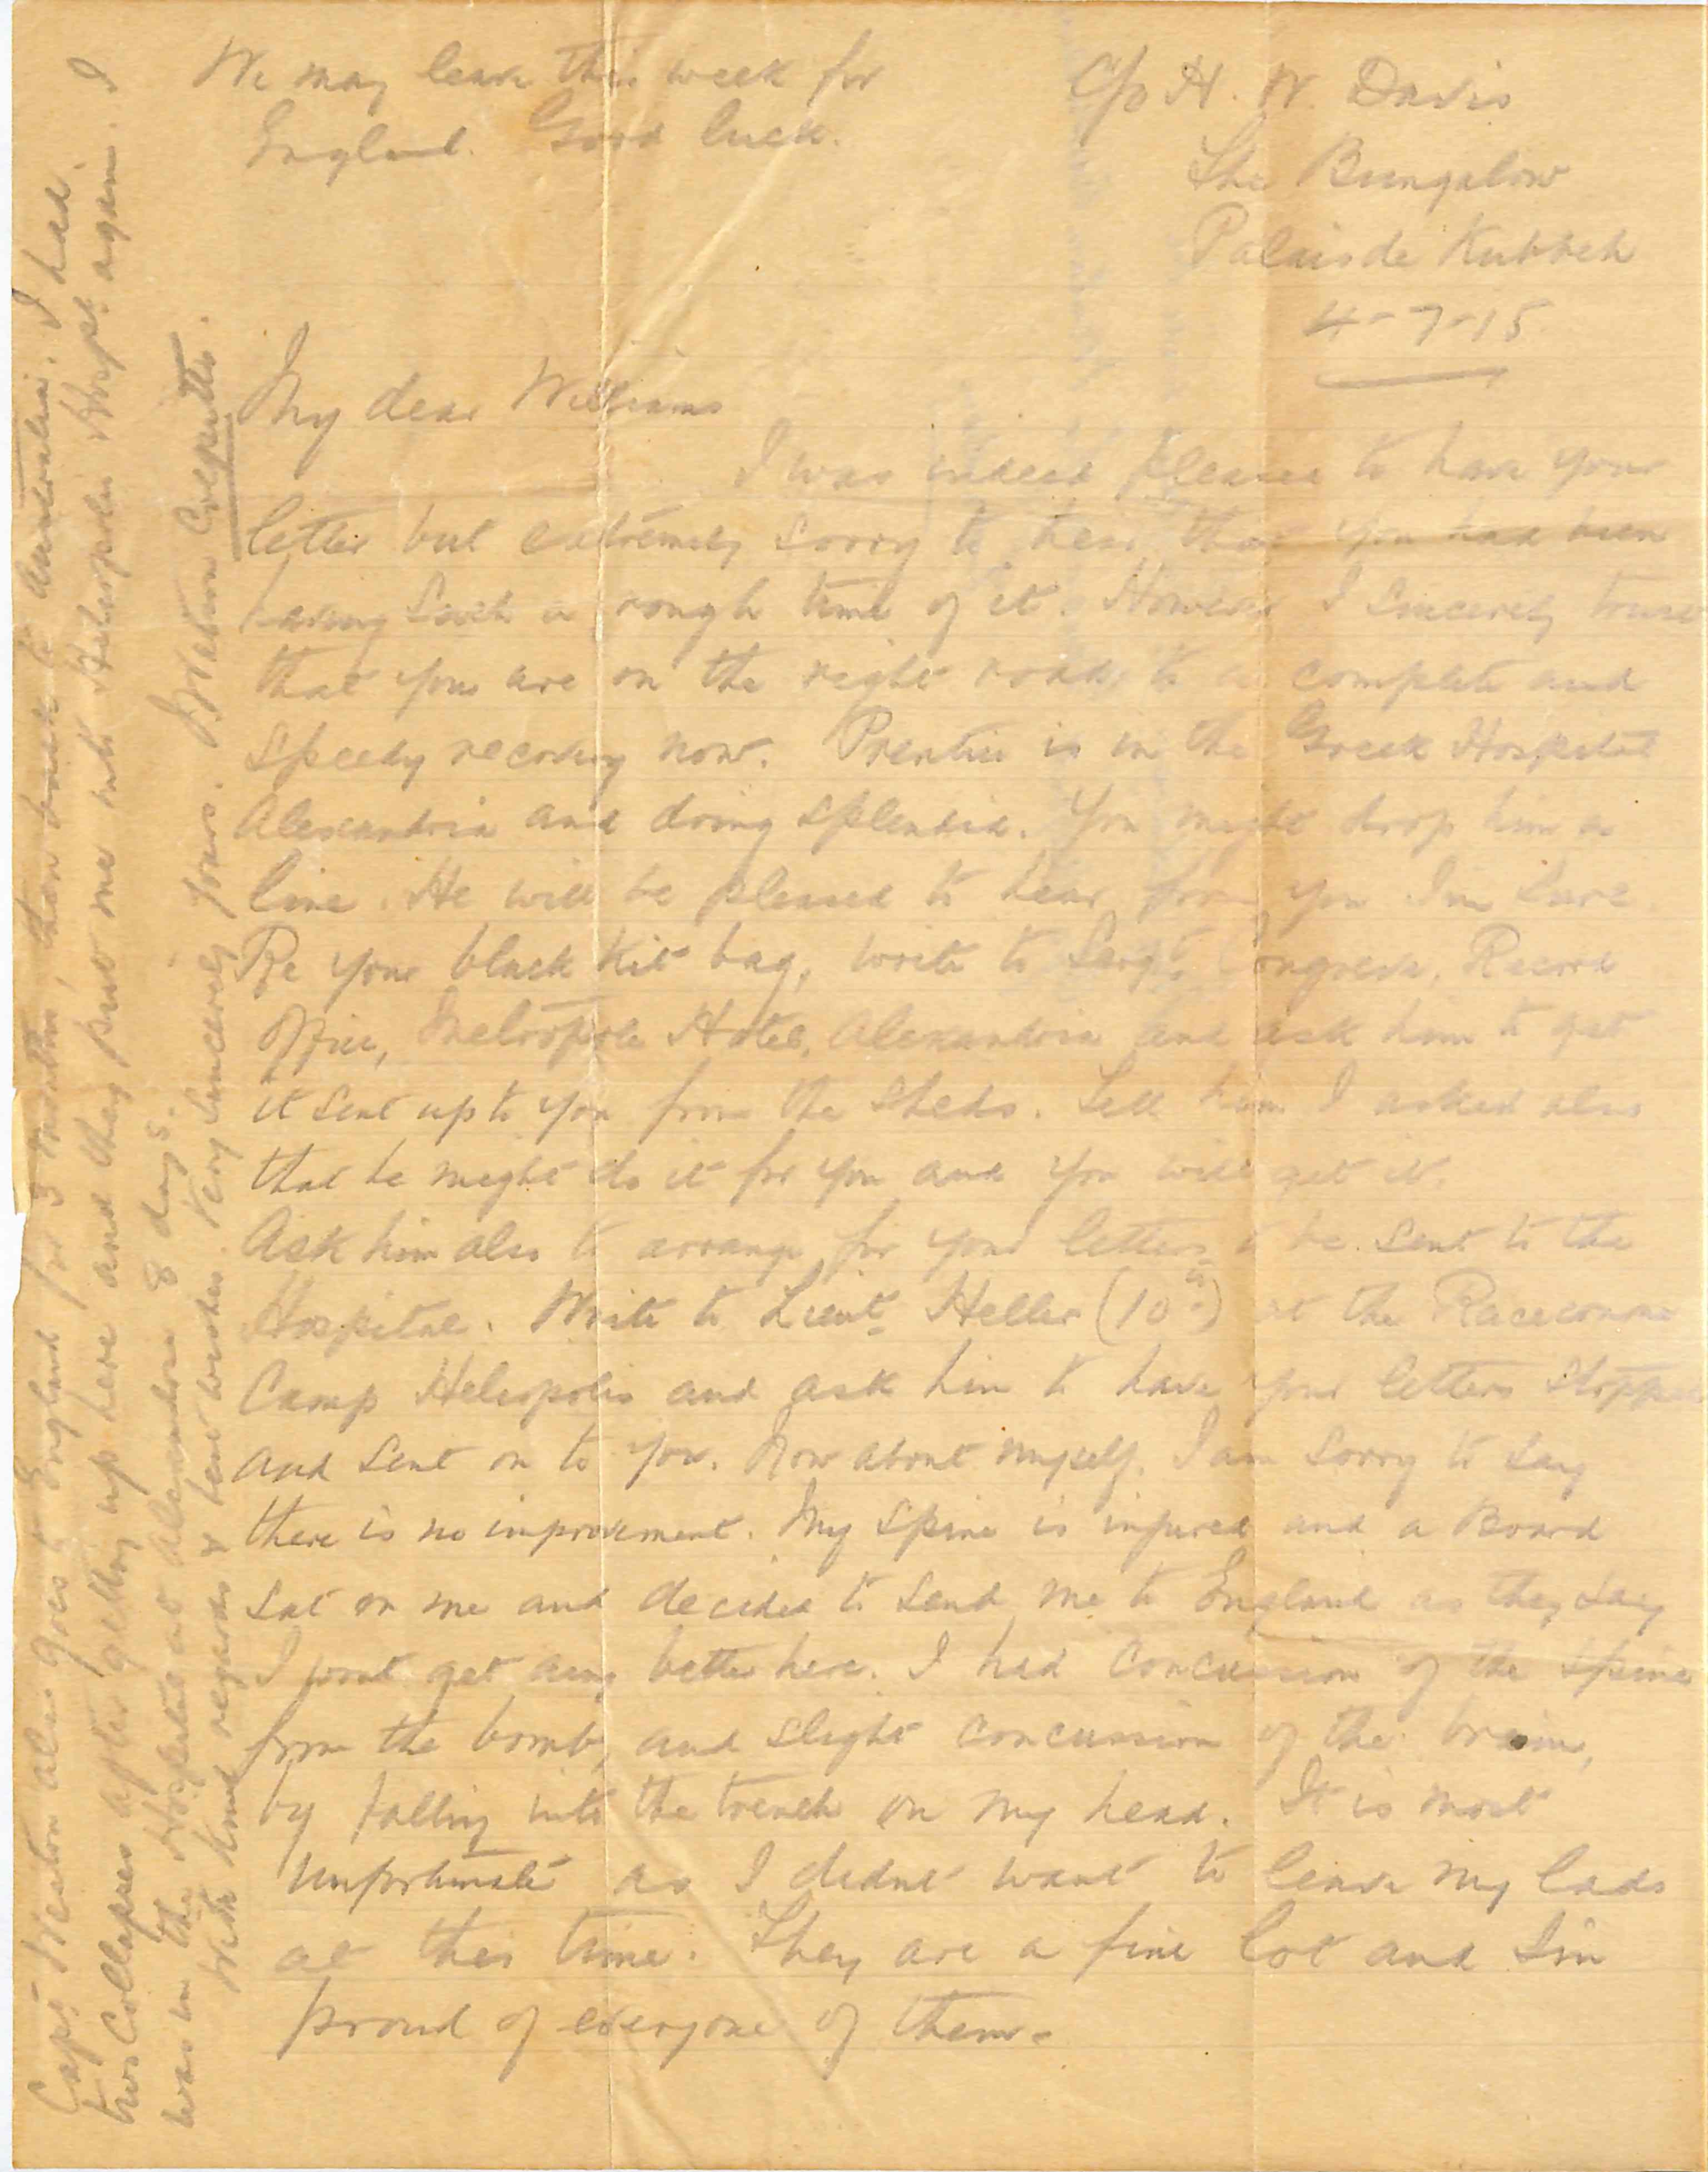 We may leave this week for
England. Good luck.
C/o H. W. Davis
The Bungalow
Palais de Kubbeh
4-7-15
My dear Williams
I was indeed pleased to have your
letter but extremely sorry to hear that you had been
having such a rough time of it. However I sincerely trust
that you are on the right road to a complete and
speedy recovery now. Prentice is in the Greek Hospital
Alexandria and doing splendid. You might drop him a
line. He will be pleased to hear from you I'm sure.
Re your black Kit bag, write to Sergt. Record
Office, Metropole Hotel, Alexandria and ask him to get
it sent up to you from the sheds. Tell him I asked also
that he might do it for you and you will get it.
Ask him also to arrange for your letters to be sent to the
Hospital. Write to Lieut. Heller (10th) at the Racecourse
Camp Heliopolis and ask him to have your letters stopped
and sent on to you. Now about myself. I am sorry to say
there is no improvement. My spine is injured and a Board
sat on me and decided to send me to England as they say
I wont get any better here. I had concussion of the spine
from the bomb, and slight concussion of the brain,
by falling into the trench on my head. It is most
unfortunate as I didnt want to leave my lads
at this time. They are a fine lot and I'm
proud of everyone of them.
Capt. Weston also goes to England for 3 months, then back to Australia. I had
two collapses after getting up here and they put me into Heliopolis Hospt. again. I
was in the Hospital at Alexandria 8 days.
With kind regards & best wishes. Very sincerely yours.